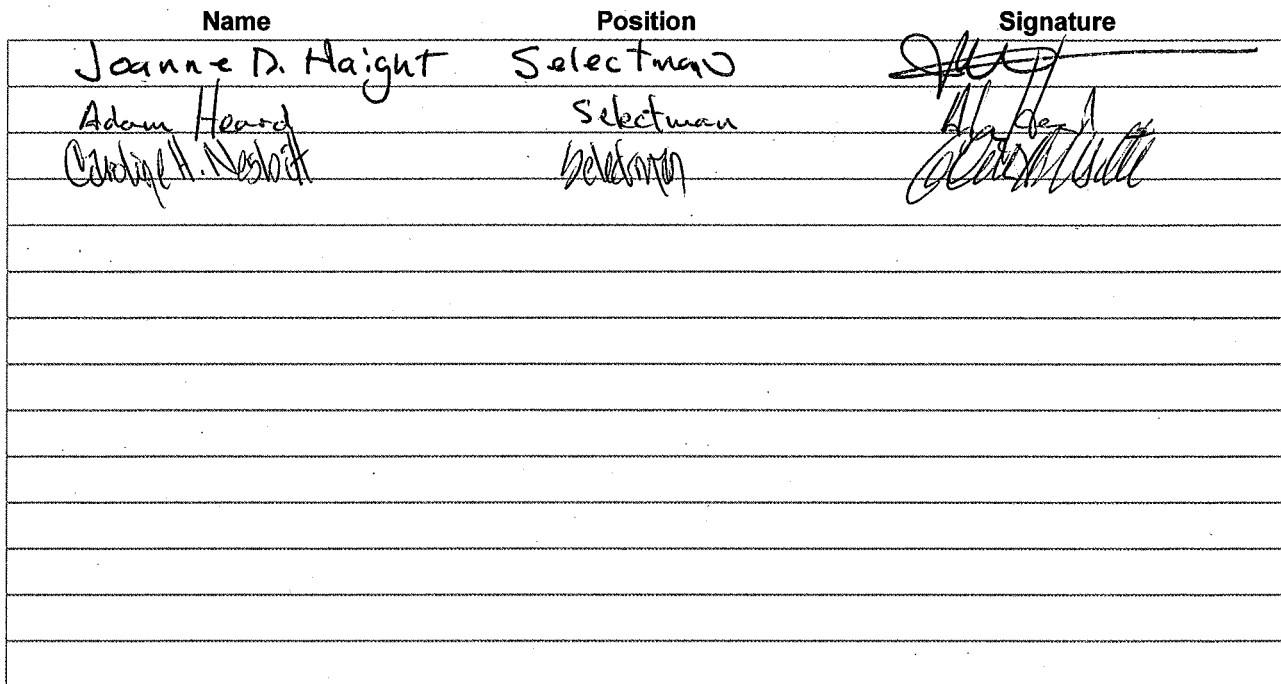 Name Position Signature
Joanne D. Haight Selectman
Adam Heard Selectman Adam Heard
Caroline H. Nesbitt Selectman